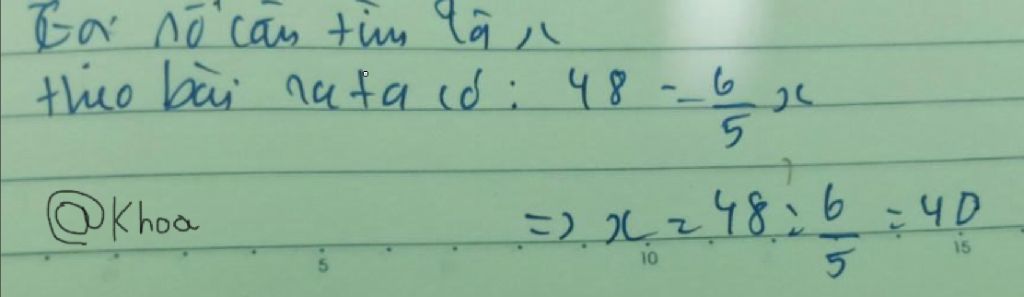 Gọi số cần tìm là x
theo bài ra ta có: 48 = 6/5 x
@Khoa
=> x = 48 : 6/5 = 40
5 10 15